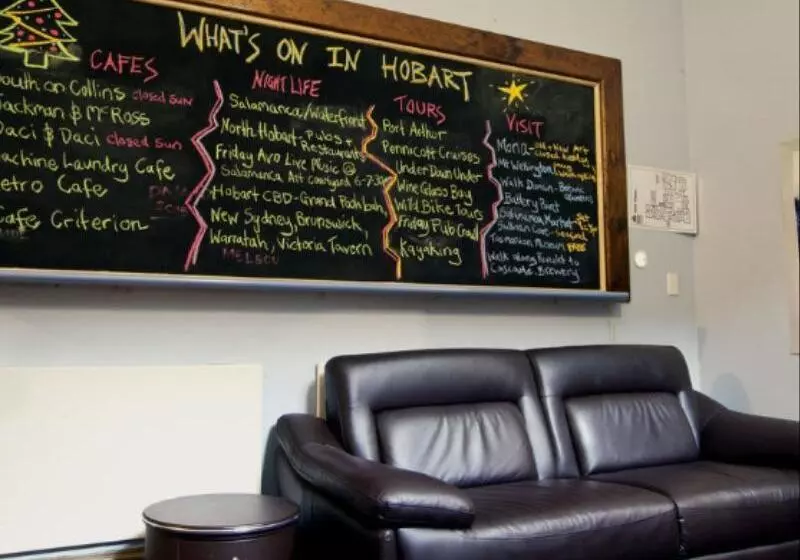 WHAT'S ON IN HOBART
CAFES
outh on Collins closed sun
Jackman & McRoss
Daci & Daci closed sun
achine Laundry Cafe
etro Cafe
afe Criterion
NIGHTLIFE
Salamanca/Waterfront
North Hobart Pubs +
Restaurants
Friday Arvo Live Music @
Salamanca Art Courtyard 6-7:30
Hobart CBD-Grand Poobah
New Sydney, Brunswick,
Warratah, Victoria Tavern
TOURS
Port Arthur
Pennicott Cruises
Under Down Under
Wine Glass Bay
Wild Bike Tours
Friday Pub Crawl
Kayaking
VISIT
Mona-
Mt Wellington
Battery Point
Salamanca Market-
Tasmanian Museum FREE
Walk along Rivulet to
Cascade Brewery